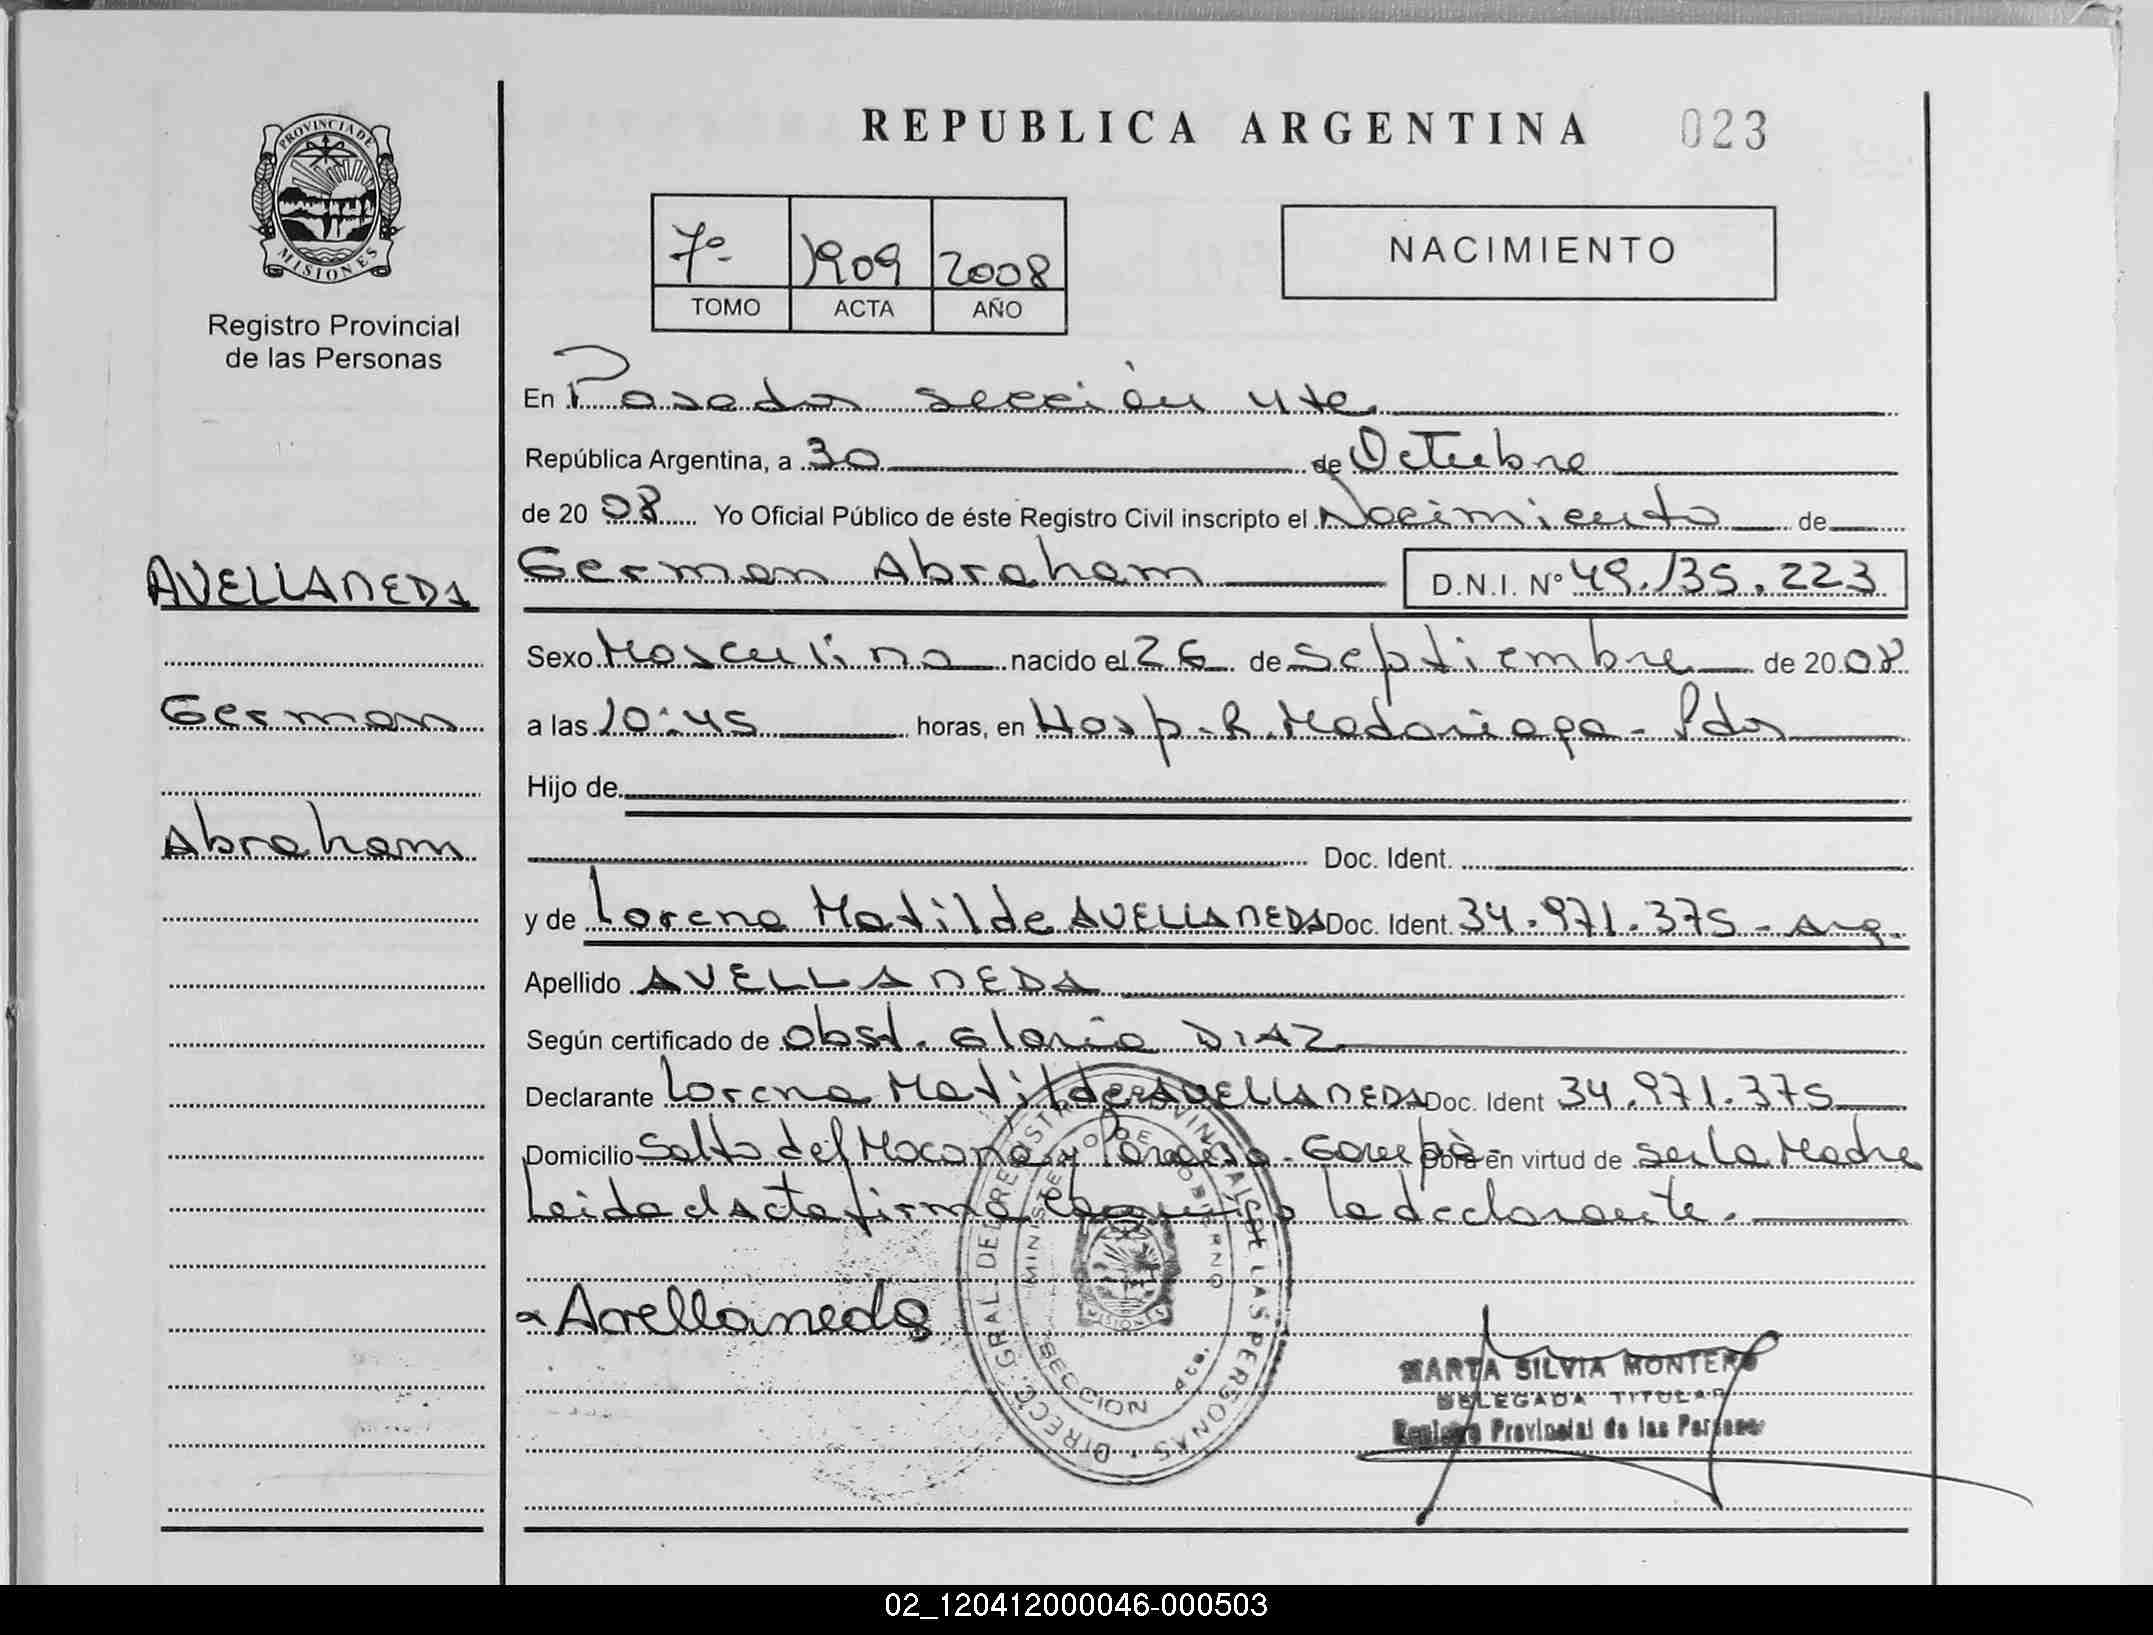 REPUBLICA ARGENTINA 023
PROVINCIA DE
MISIONES
Registro Provincial
de las Personas
7º 1909 2008
TOMO ACTA AÑO
NACIMIENTO
En Posadas sección 4ta.
República Argentina, a 30 de Octubre
de 2008 Yo Oficial Público de éste Registro Civil inscripto el Nacimiento de
AVELLANEDA
German
Abraham
German Abraham D.N.I. Nº 49.135.223
Sexo Masculino nacido el 26 de Septiembre de 2008
a las 10:45 horas, en Hosp. R. Madariaga - Pdas
Hijo de
Doc. Ident.
y de Lorena Matilde AVELLANEDA Doc. Ident. 34.971.375 - Arg.
Apellido AVELLANEDA
Según certificado de Obst. Gloria DIAZ
Declarante Lorena Matilde AVELLANEDA Doc. Ident 34.971.375
Domicilio Salto del Mocona y - Garupà - Obra en virtud de ser la Madre
Leida el Acta firma conmigo la declarante.
Avellaneda
DIRECC. GRAL. DEL REGISTRO PROVINCIAL DE LAS PERSONAS
MINISTERIO DE GOBIERNO
MISIONES
SECCION 4ta.
MARTA SILVIA MONTERO
DELEGADA TITULAR
Registro Provincial de las Personas
02_120412000046-000503